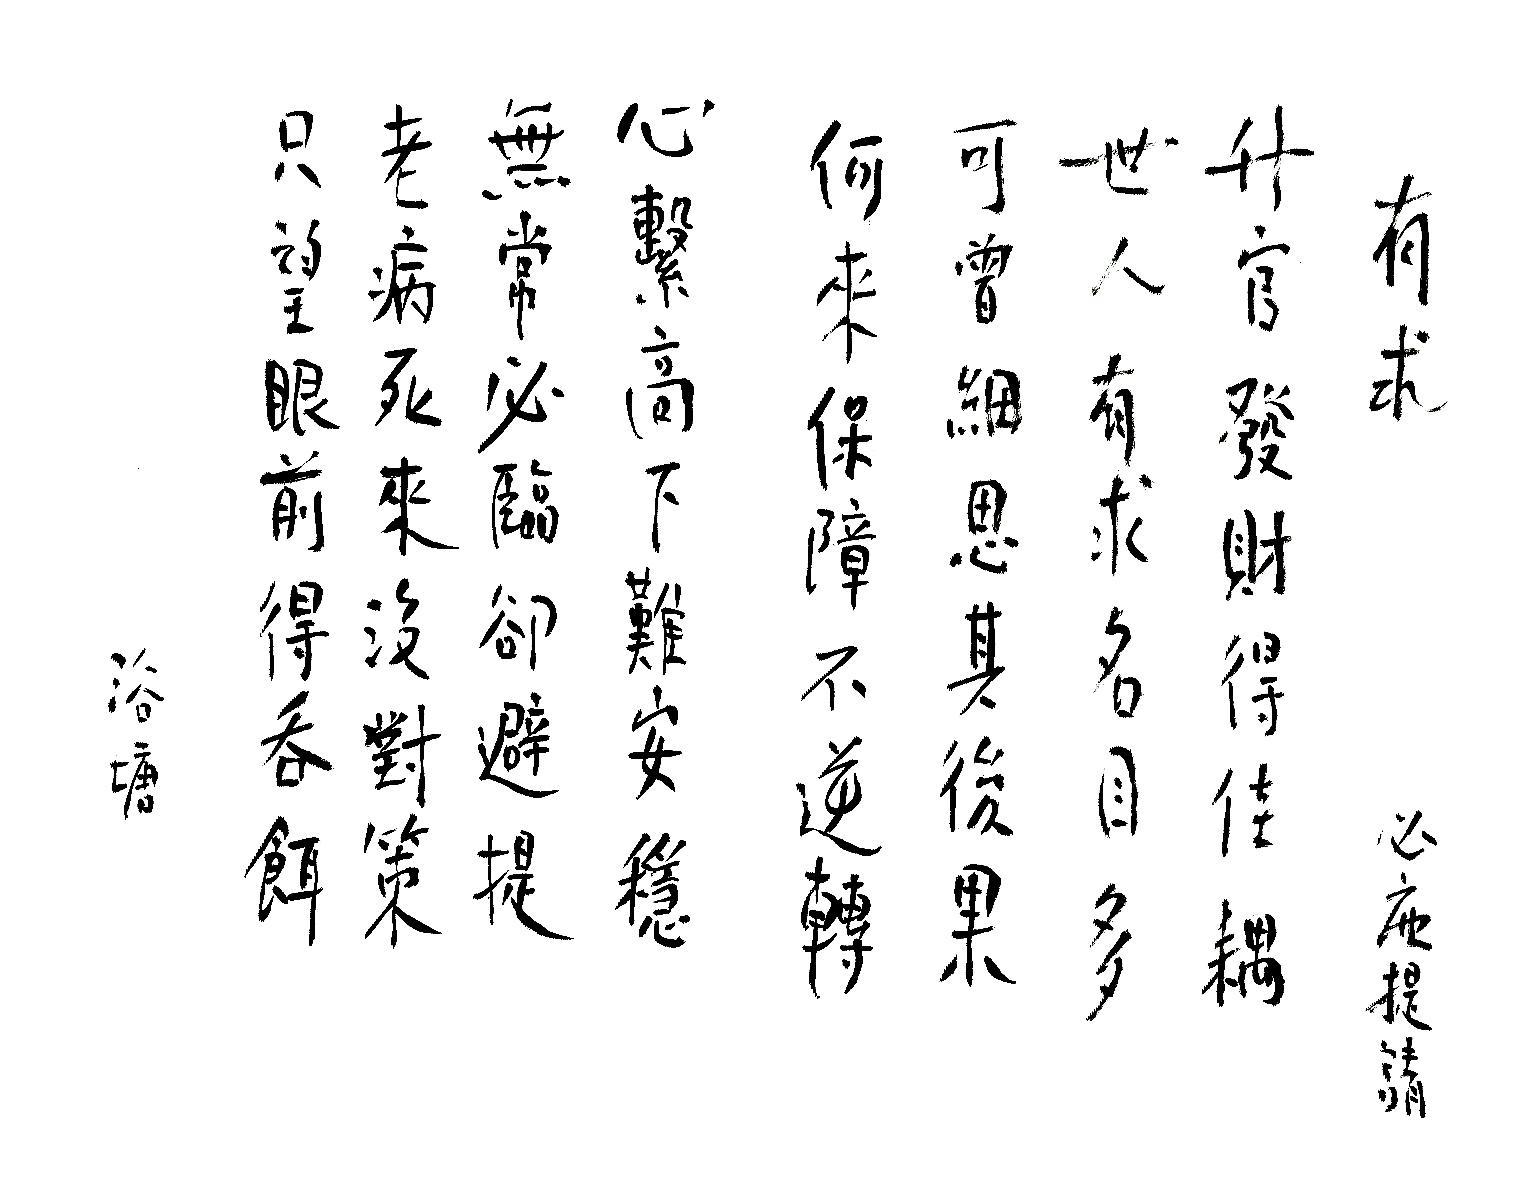 有求
必應提請
升官發財得佳耦
世人有求名目多
可曾細思其後果
何來保障不逆轉
心繫高下難安穩
無常必臨卻避提
老病死來沒對策
只望眼前得吞餌
浴塘